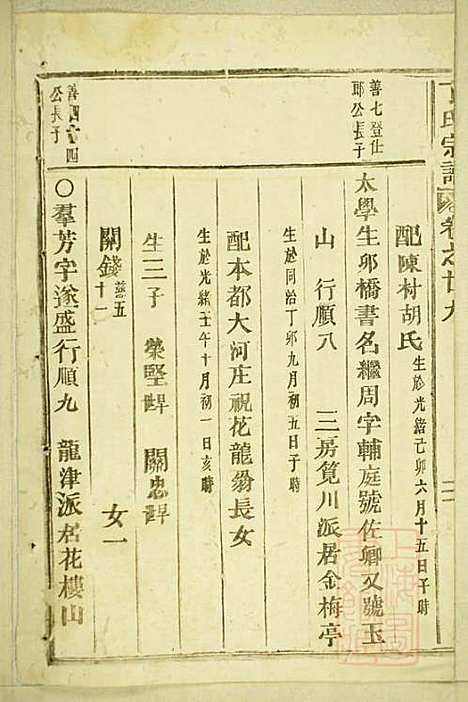 丁氏宗譜 卷之廿九
配陳村胡氏 生於光緒己卯六月十五日子時
善七登仕
郎公長子
太學生卯橋書名繼周字輔庭號佐卿又號玉
山 行順八 三房筧川派居金梅亭
生於同治丁卯九月初五日子時
配本都大河庄祝花龍翁長女
生於光緒壬午十月初一日亥時
生三子 榮堅 關忠
關錢 女一
善四百四
公長子
○羣芳字遂盛行順九 龍津派居花樓山